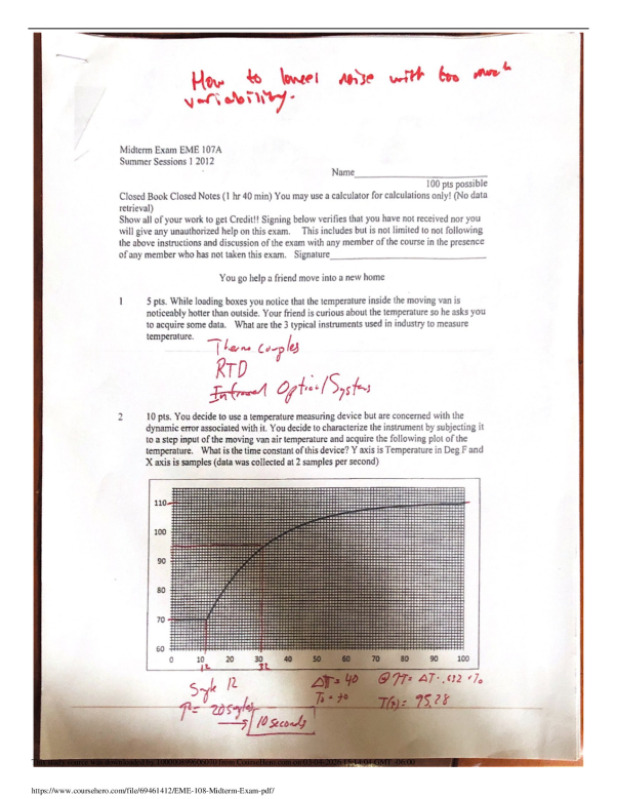 How to lower noise with too much
variability.
Midterm Exam EME 107A
Summer Sessions 1 2012
Name
100 pts possible
Closed Book Closed Notes (1 hr 40 min) You may use a calculator for calculations only! (No data
retrieval)
Show all of your work to get Credit!! Signing below verifies that you have not received nor you
will give any unauthorized help on this exam. This includes but is not limited to not following
the above instructions and discussion of the exam with any member of the course in the presence
of any member who has not taken this exam. Signature
You go help a friend move into a new home
1 5 pts. While loading boxes you notice that the temperature inside the moving van is
noticeably hotter than outside. Your friend is curious about the temperature so he asks you
to acquire some data. What are the 3 typical instruments used in industry to measure
temperature.
Thermo couples
RTD
Infrared Optical/Systems
2 10 pts. You decide to use a temperature measuring device but are concerned with the
dynamic error associated with it. You decide to characterize the instrument by subjecting it
to a step input of the moving van air temperature and acquire the following plot of the
temperature. What is the time constant of this device? Y axis is Temperature in Deg F and
X axis is samples (data was collected at 2 samples per second)
110
100
90
80
70
60
0 10 20 30 40 50 60 70 80 90 100
12 32
ΔT = 40 @ 1τ = ΔT · .632 + T₀
Sample 12
T₀ = 70 T(τ) = 95.28
τ = 20 samples
→ 10 seconds
https://www.coursehero.com/file/69461412/EME-108-Midterm-Exam-pdf/